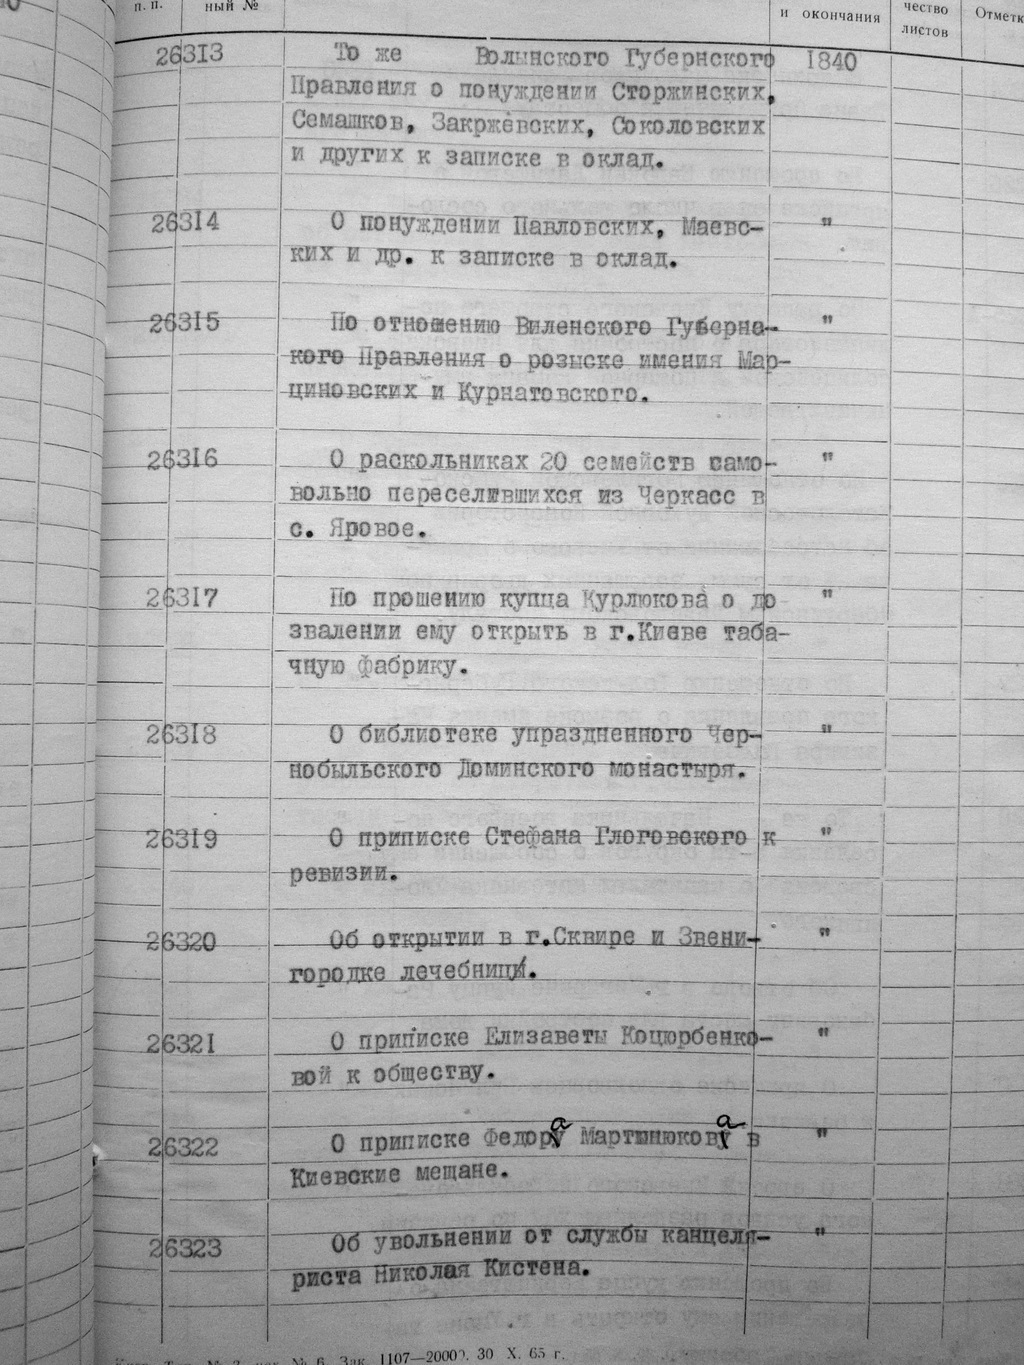 п. п. ный № и окончания чество листов Отметк
26313 То же Волынского Губернского 1840
Правления о понуждении Сторжинских,
Семашков, Закржевских, Соколовских
и других к записке в оклад.
26314 О понуждении Павловских, Маевс- "
ких и др. к записке в оклад.
26315 По отношению Виленского Губернс- "
кого Правления о розыске имения Мар-
циновских и Курнатовского.
26316 О раскольниках 20 семейств само- "
вольно переселившихся из Черкасс в
с. Яровое.
26317 По прошению купца Курлюкова о до "
звалении ему открыть в г.Киеве таба-
чную фабрику.
26318 О библиотеке упраздненного Чер- "
нобыльского Доминского монастыря.
26319 О приписке Стефана Глоговского к "
ревизии.
26320 Об открытии в г.Сквире и Звени- "
городке лечебниц.
26321 О приписке Елизаветы Коцюрбенко- "
вой к обществу.
26322 О приписке Федора Мартынюкова в "
Киевские мещане.
26323 Об увольнении от службы канцеля- "
риста Николая Кистена.
№ 6. Зак. 1107—2000. 30 X. 65 г.